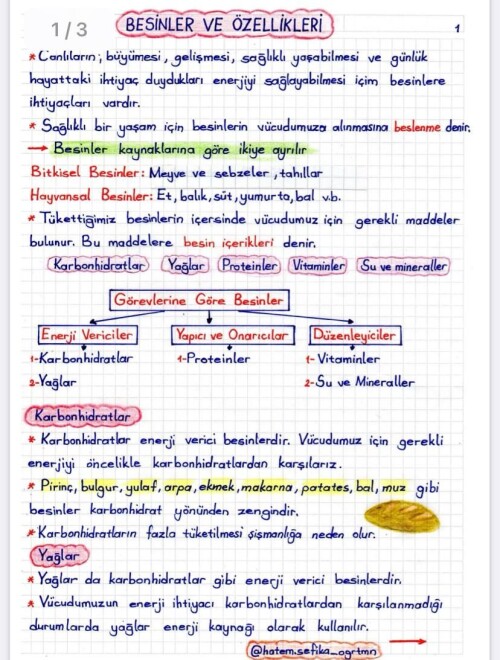 1/3
BESİNLER VE ÖZELLİKLERİ
1
* Canlıların; büyümesi, gelişmesi, sağlıklı yaşabilmesi ve günlük
hayattaki ihtiyaç duydukları enerjiyi sağlayabilmesi içim besinlere
ihtiyaçları vardır.
* Sağlıklı bir yaşam için besinlerin vücudumuza alınmasına beslenme denir.
→ Besinler kaynaklarına göre ikiye ayrılır
Bitkisel Besinler: Meyve ve sebzeler, tahıllar
Hayvansal Besinler: Et, balık, süt, yumurta, bal v.b.
* Tükettiğimiz besinlerin içersinde vücudumuz için gerekli maddeler
bulunur. Bu maddelere besin içerikleri denir.
Karbonhidratlar Yağlar Proteinler Vitaminler Su ve mineraller
Görevlerine Göre Besinler
Enerji Vericiler Yapıcı ve Onarıcılar Düzenleyiciler
1-Karbonhidratlar 1-Proteinler 1-Vitaminler
2-Yağlar 2-Su ve Mineraller
Karbonhidratlar
* Karbonhidratlar enerji verici besinlerdir. Vücudumuz için gerekli
enerjiyi öncelikle karbonhidratlardan karşılarız.
* Pirinç, bulgur, yulaf, arpa, ekmek, makarna, patates, bal, muz gibi
besinler karbonhidrat yönünden zengindir.
* Karbonhidratların fazla tüketilmesi şişmanlığa neden olur.
Yağlar
* Yağlar da karbonhidratlar gibi enerji verici besinlerdir.
* Vücudumuzun enerji ihtiyacı karbonhidratlardan karşılanmadığı
durumlarda yağlar enerji kaynağı olarak kullanılır.
@hatem.sefika_ogrtmn